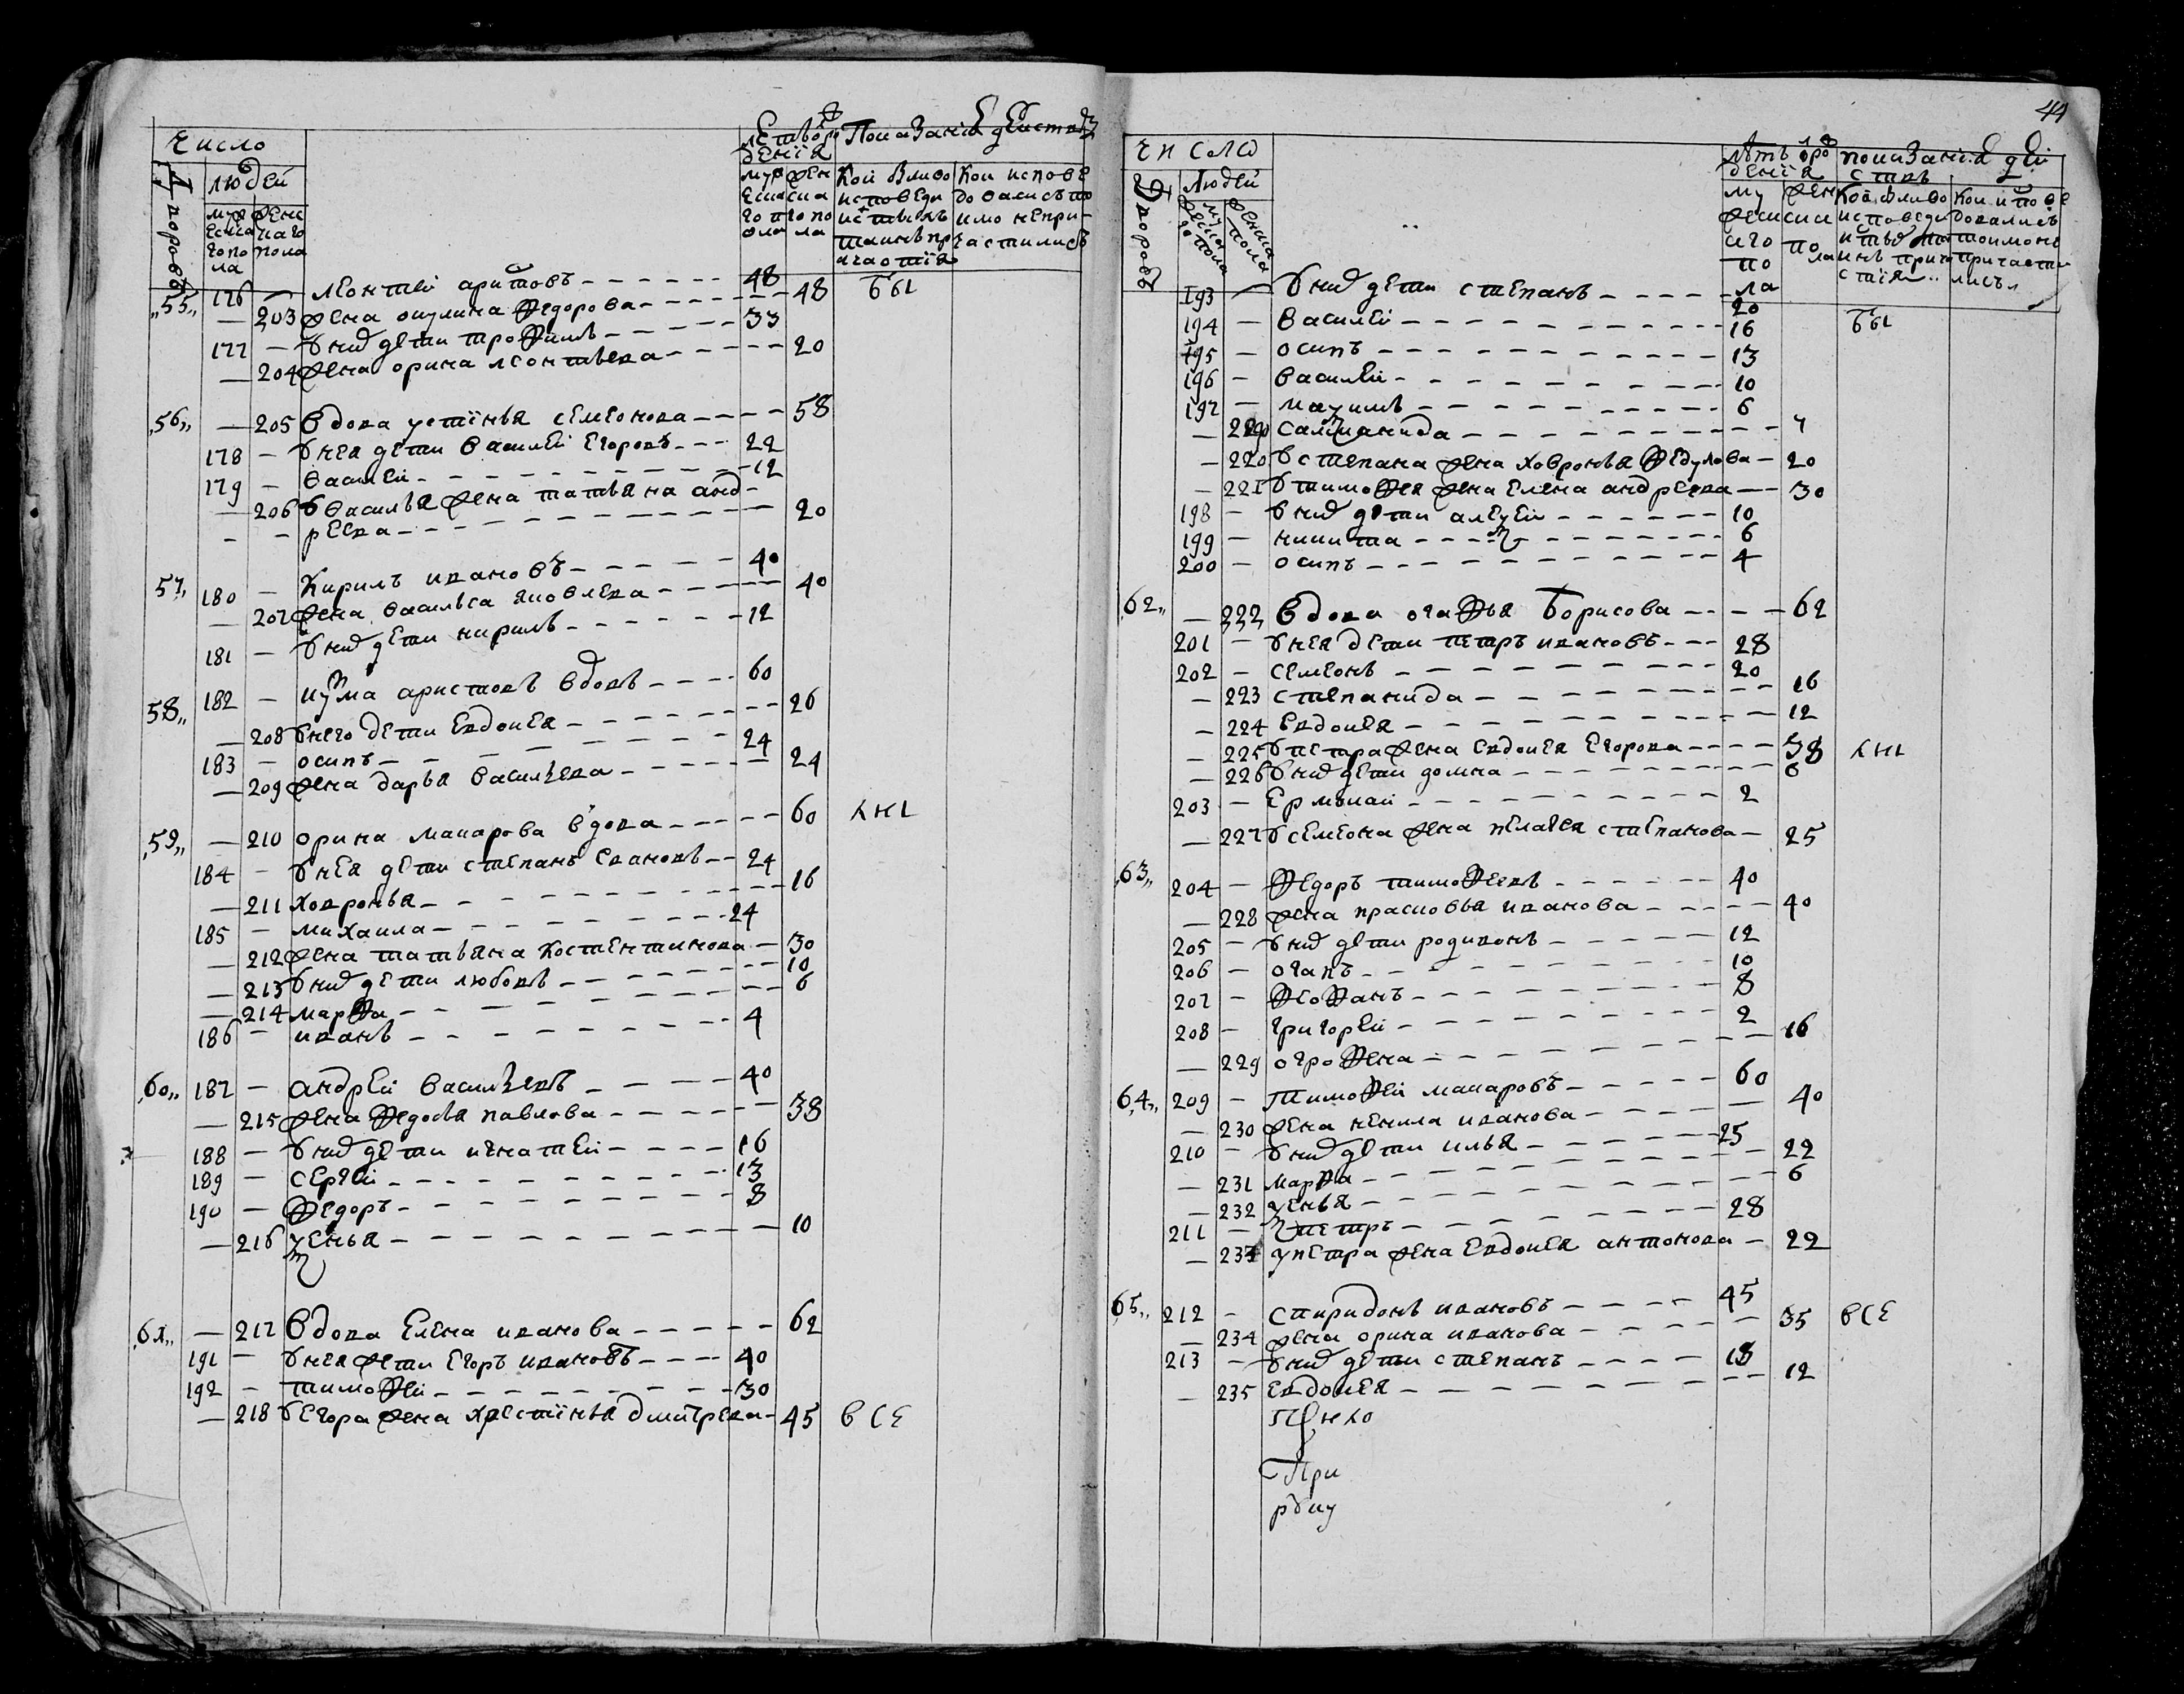 Число
людей
дворовъ
мужеска го пола
женскаго пола
Лѣтъ рожденїя
мужеска го пола
женска пола
Показанїе действъ
Кои были во исповеди и с:тыхъ таинъ причастїя
Кои исповедовались токмо непричастились
55 176 — леонтей аристовъ 48 бы
— 203 жена акулина федорова 48
177 — ѹ них дети трофимъ 33
— 204 жена орина леонтьева 20
56 — 205 вдова устїнья семенова 58
178 — ѹ нея дети василей егоровъ 22
179 — василеи 12
— 206 ѹ василья жена татьяна анд-
— — реева 20
57 180 — Кирилъ ивановъ 40
— 207 жена василиса яковлева 40
181 — ѹ них дети кирилъ 12
58 182 — кузма аристовъ вдовъ 60
— 208 ѹ него дети евдокея 26
183 — осипъ 24
— 209 жена дарья васильева 24
59 — 210 орина макарова вдова 60
184 — ѹ нея дети степанъ ивановъ 24
— 211 ховронья 16
185 — михаила 24
— 212 жена татьяна костентинова 30
— 213 ѹ них дети любовь 10
— 214 марфа 6
186 — иванъ 4
60 187 — андрей васильевъ 40
— 215 жена федосья павлова 38
188 — ѹ них дети игнатеи 16
189 — сергеи 13
190 — федоръ 8
— 216 ксенья 10
61 — 217 вдова елена иванова 62
191 — ѹ нея дети егоръ ивановъ 40
192 — тимофеи 30
— 218 ѹ егора жена хрестїнья дмитрева 45 все
44
Число
дворовъ
Людей
мужеска го пола
женска пола
лѣтъ рожденїя
показанїе действъ
Кои были во исповеди и с:тыхъ таинъ причастїя
Кои исповедовались токмо непричастились
193 — ѹ них дети степанъ 20
194 — василеи 16 бы
195 — осипъ 13
196 — василеи 10
197 — максимъ 6
— 219 саломанида 4
— 220 ѹ степана жена ховронья федулова 20
— 221 ѹ тимофея жена елена андреева 30
198 — ѹ них дети алексеи 10
199 — никита 6
200 — осипъ 4
62 — 222 вдова огафья Борисова 62
201 — ѹ нея дети петръ ивановъ 28
202 — семенъ 20
— 223 степанида 16
— 224 евдокея 12
— 225 ѹ петра жена евдокея егорова 38
— 226 ѹ них дети домна 6
203 — ермолаи 2
— 227 ѹ семена жена пелагея степанова 25
63 204 — Федоръ тимофеевъ 40
— 228 жена прасковья иванова 40
205 — ѹ них дети родивонъ 12
206 — агапъ 10
207 — феофанъ 8
208 — григореи 2
— 229 огрофена 16
64 209 — Тимофеи макаровъ 60
— 230 жена ненила иванова 40
210 — ѹ них дети илья 25
— 231 марфа 22
— 232 ксенья 6
211 — петръ 28
— 233 у петра жена евдокея антонова 22
65 212 — спиридонъ ивановъ 45
— 234 жена орина иванова 35 все
213 — ѹ них дети степанъ 18
— 235 евдокея 12
При
рѹку